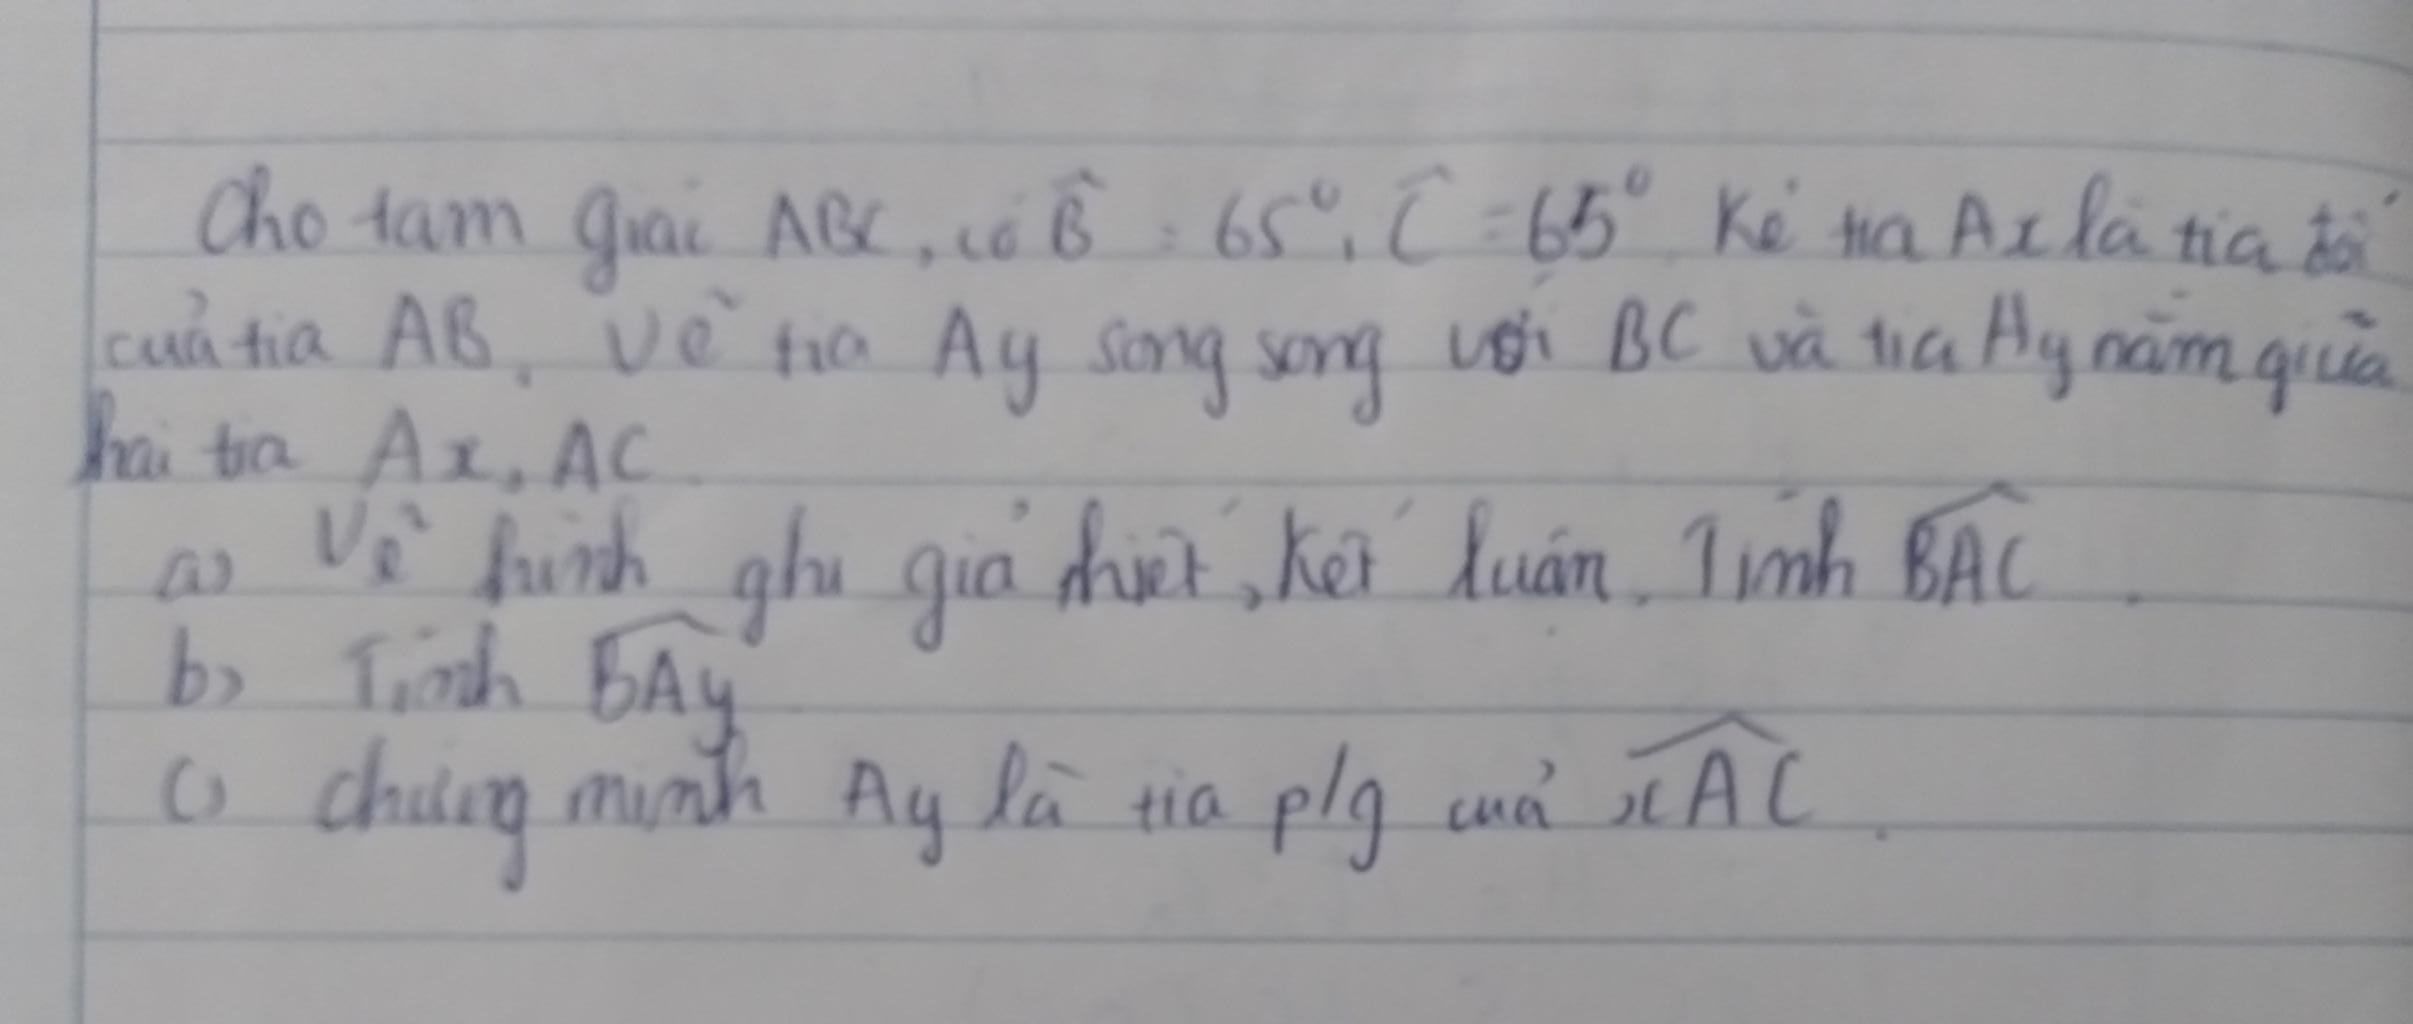 Cho tam giác ABC, có B̂ = 65°, Ĉ = 65° Kẻ tia Ax là tia đối
của tia AB. Vẽ tia Ay song song với BC và tia Ay nằm giữa
hai tia Ax, AC
a) Vẽ hình ghi giả thiết, kết luận. Tính B̂AC.
b) Tính B̂Ay
c) chứng minh Ay là tia p/g của x̂AC.